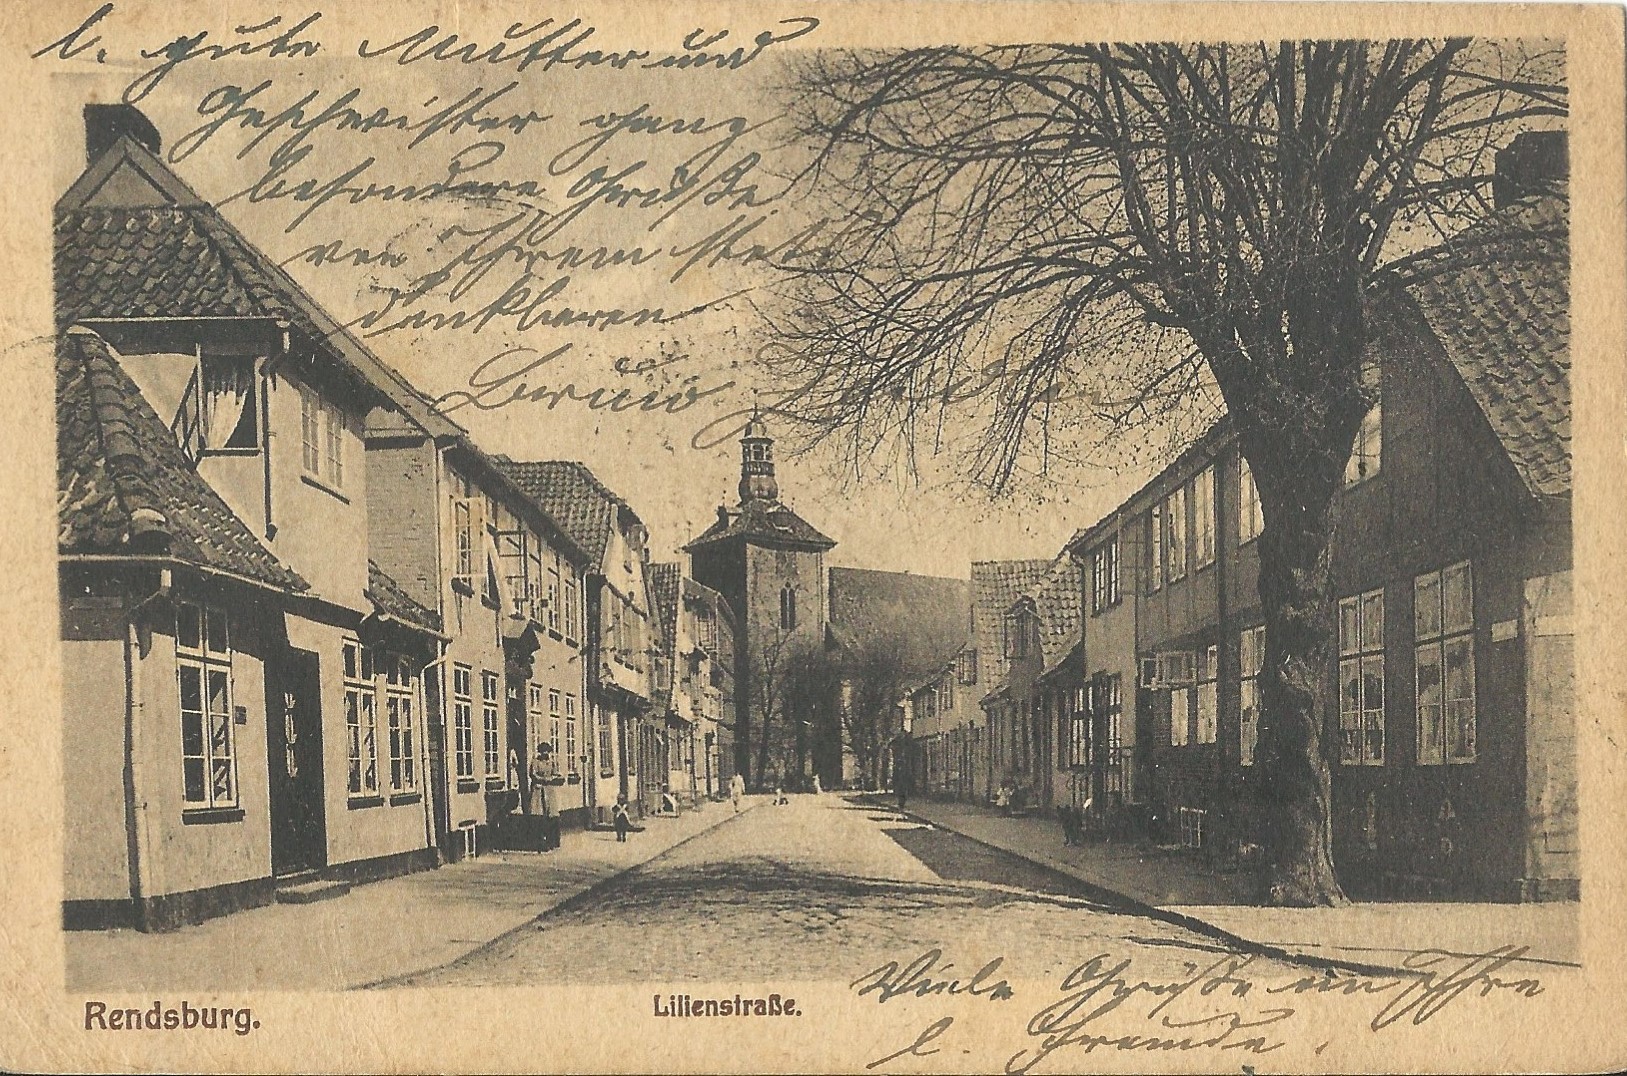 l. gute Mutter und
Geschwister ganz
besondere Grüße
von Ihrem stets
dankbaren
Bruno
Rendsburg.
Lilienstraße.
Viele Grüße an Ihre
l. Freunde.